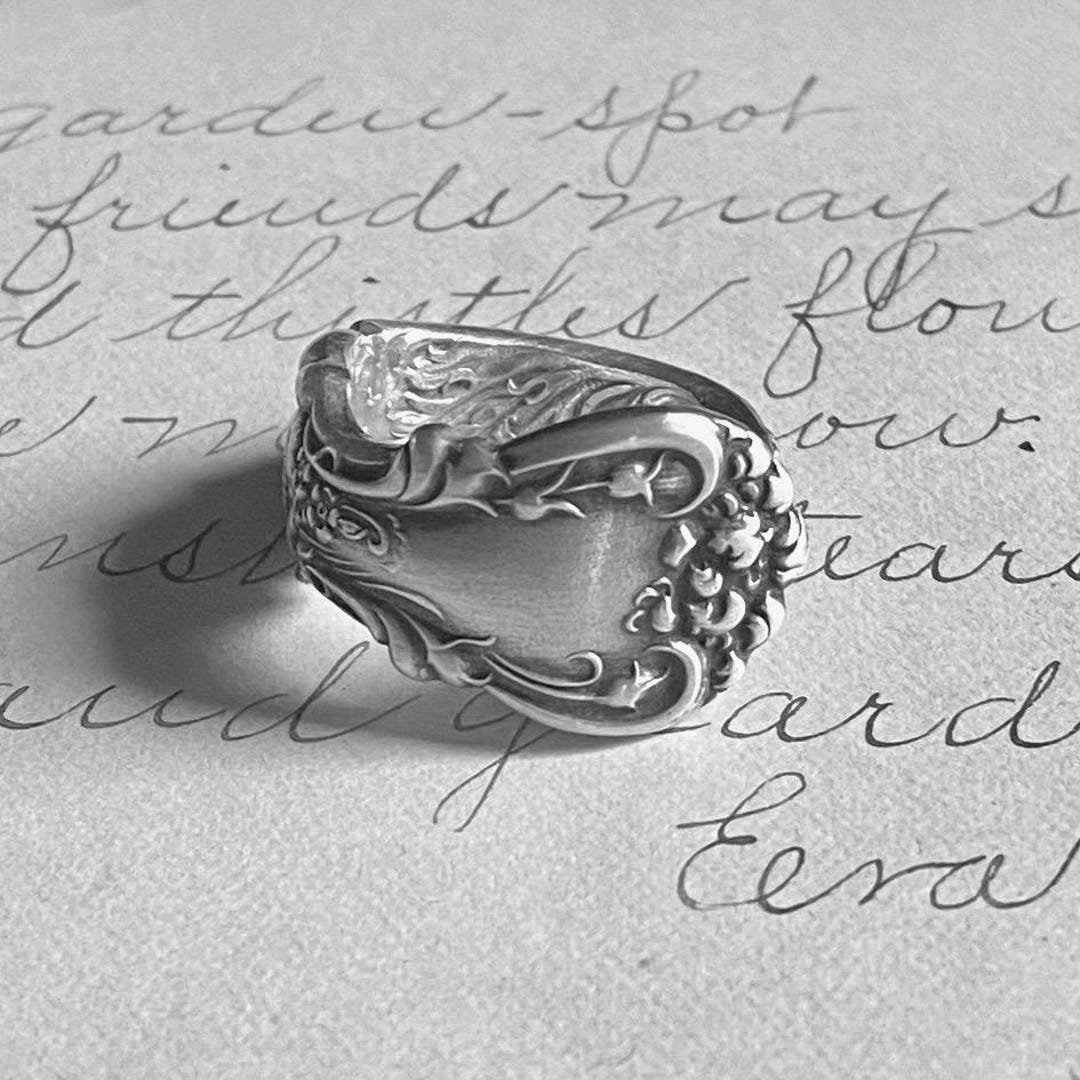 garden-spot
friends may s
d thistles flou
e m ow.
nst tears
and guard
Eera